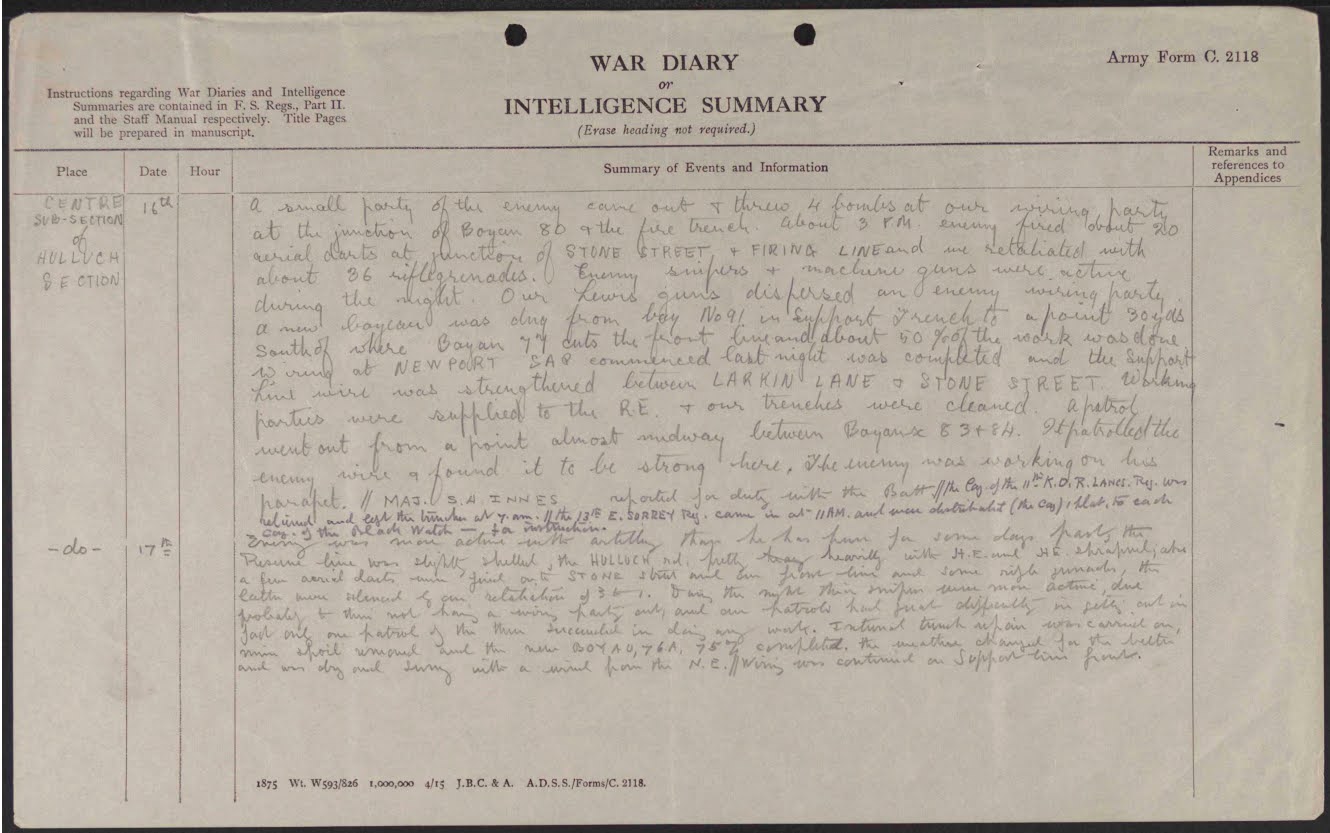 WAR DIARY
or
INTELLIGENCE SUMMARY
(Erase heading not required.)
Army Form C. 2118
Instructions regarding War Diaries and Intelligence
Summaries are contained in F. S. Regs., Part II.
and the Staff Manual respectively. Title Pages
will be prepared in manuscript.
Place
Date
Hour
Summary of Events and Information
Remarks and
references to
Appendices
CENTRE
SUB-SECTION
of
HULLUCH
SECTION
16th
A small party of the enemy came out & threw 4 bombs at our wiring party
at the junction of Boyau 80 & the fire trench. About 3 P.M. enemy fired about 20
aerial darts at junction of STONE STREET & FIRING LINE and we retaliated with
about 36 rifle grenades. Enemy snipers & machine guns were active
during the night. Our Lewis guns dispersed an enemy wiring party.
A new boyeau was dug from bay No 91 in Support Trench to a point 30 yds
South of where Boyau 77 cuts the front line and about 50 % of the work was done.
Wiring at NEWPORT SAP commenced last night was completed and the Support
Line wire was strengthened between LARKIN LANE & STONE STREET. Working
parties were supplied to the R.E. & our trenches were cleaned. A patrol
went out from a point almost midway between Boyaux 83 & 84. It patrolled the
enemy wire & found it to be strong here. The enemy was working on his
parapet. // MAJ. S.A. INNES reported for duty with the Batt // the Coy. of the 11th K.O.R. LANCS. Reg. was
relieved and left the trenches at 7. am. // the 13th E. SURREY Reg. came in at 11 AM. and were distributed (the Coy) 1 plat. to each
Coy. of the Black Watch — for instruction.
- do -
17th
Enemy was more active with artillery than he has been for some days, parts the
Reserve line was slightly shelled, the HULLUCH rd. pretty heavily with H.E. and HE shrapnel; also
a few aerial darts were fired onto STONE street and our front line and some rifle grenades, the
latter were silenced by our retaliation of 3 to 1. During the night their snipers were more active, due
probably to them not having a wiring party out, and our patrols had great difficulty in getting out in
fact only one patrol of the three succeeded in doing any work. Internal trench repair was carried on,
more spoil removed and the new BOYAU, 76A, 75% completed. the weather changed for the better
and was dry and sunny with a wind from the N.E. // Wiring was continued on Support line front.
1875 Wt. W593/826 1,000,000 4/15 J.B.C. & A. A.D.S.S./Forms/C. 2118.